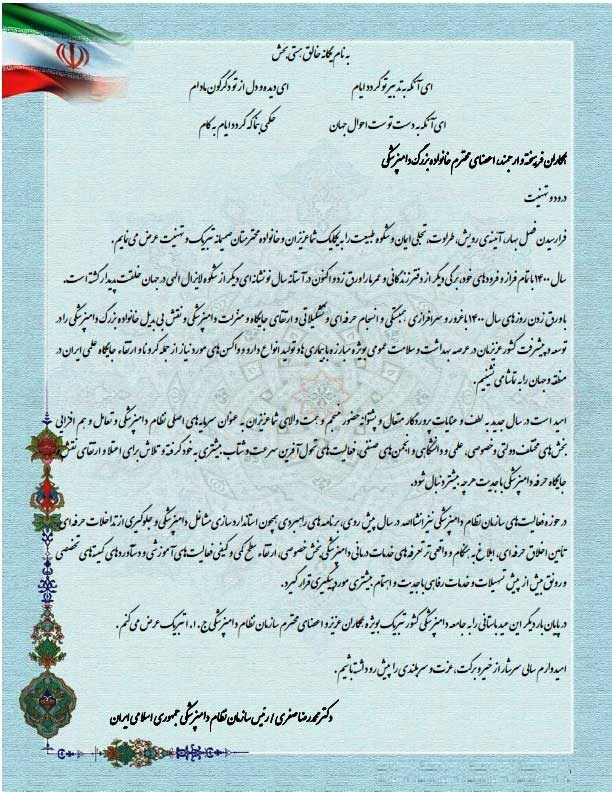 به نام یگانه خالق هستی بخش
ای آنکه به تدبیر تو گردد ایام ای دیده و دل از تو دگرگون مادام
ای آنکه به دست توست احوال جهان حکمی نما که گردد ایام به کام
همکاران فرهیخته و ارجمند، اعضای محترم خانواده بزرگ دامپزشکی
درود و تهنیت
فرارسیدن فصل بهار، آیینه‌ی رویش، طراوت، تجلی ایمان و شکوه طبیعت را به یکایک شما عزیزان و خانواده محترمتان صمیمانه تبریک و تهنیت عرض می نمایم.
سال ۱۴۰۰ با تمام فراز و فرودهای خود برگی دیگر از دفتر زندگانی و عمر ما را ورق زد و اکنون در آستانه سال نو نشانه ای دیگر از شکوه لایزال الهی در جهان خلقت پدیدار گشته است.
با ورق زدن روزهای سال ۱۴۰۰ با غرور و سرافرازی، همبستگی و انسجام حرفه ای و تشکیلاتی و ارتقای جایگاه و منزلت دامپزشکی و نقش بی بدیل خانواده بزرگ دامپزشکی را در
توسعه و پیشرفت کشور عزیزمان در عرصه بهداشت و سلامت عمومی بویژه مبارزه با بیماری ها و تولید انواع دارو و واکسن های مورد نیاز از جمله کرونا و ارتقاء جایگاه علمی ایران در
منطقه و جهان را به تماشا می نشینیم.
امید است در سال جدید به لطف و عنایات پروردگار متعال و پشتوانه حضور فهیم و همت والای شما عزیزان به عنوان سرمایه های اصلی نظام دامپزشکی و تعامل و هم افزایی
بخش های مختلف دولتی و خصوصی، علمی و دانشگاهی و انجمن های صنفی، فعالیت های تحول آفرین سرعت و شتاب بیشتری به خود گرفته و تلاش برای اعتلا و ارتقای نقش و
جایگاه حرفه دامپزشکی با جدیت هر چه بیشتر دنبال شود.
در حوزه فعالیت های سازمان نظام دامپزشکی نیز انشاالله در سال پیش روی، برنامه های راهبردی همچون استانداردسازی مشاغل دامپزشکی و جلوگیری از تداخلات حرفه ای،
تامین اخلاق حرفه ای، ابلاغ به هنگام و واقعی تر تعرفه های خدمات درمانی دامپزشکی بخش خصوصی، ارتقاء سطح کمی و کیفی فعالیت های آموزشی و دستاوردهای کمیته های تخصصی
و رونق بیش از پیش تسهیلات و خدمات رفاهی با جدیت و اهتمام بیشتری مورد پیگیری قرار گیرد.
در پایان بار دیگر این عید باستانی را به جامعه دامپزشکی کشور تبریک بویژه همکاران عزیز و اعضای محترم سازمان نظام دامپزشکی ج.ا.ا تبریک عرض می کنم.
امیدوارم سالی سرشار از خیر و برکت، عزت و سربلندی را پیش رو داشته باشیم.
دکتر محمدرضا صفری / رئیس سازمان نظام دامپزشکی جمهوری اسلامی ایران